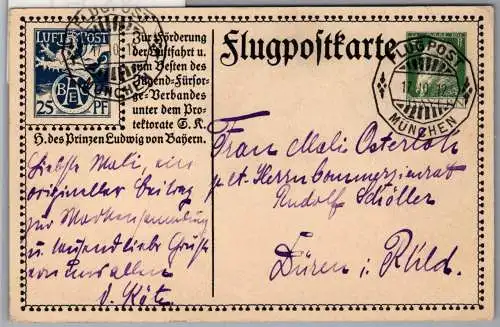 LUFTPOST
25 PF
BAEC
FLUGPOST
MÜNCHEN
Zur Förderung
der Luftfahrt u.
zum Besten des
Jugend-Fürsor-
ge-Verbandes
unter dem Pro-
tektorate S. K.
H. des Prinzen Ludwig von Bayern.
Flugpostkarte
FLUGPOST
17 10 12
MÜNCHEN
Liebste Mali, ein
origineller Beitrag
zur Markensammlung
u. tausend liebe Grüße
von uns allen
Frau Mali Osterroth
Herrn Commerzienrat
Rudolf Schöller
Düren i. Rhld.